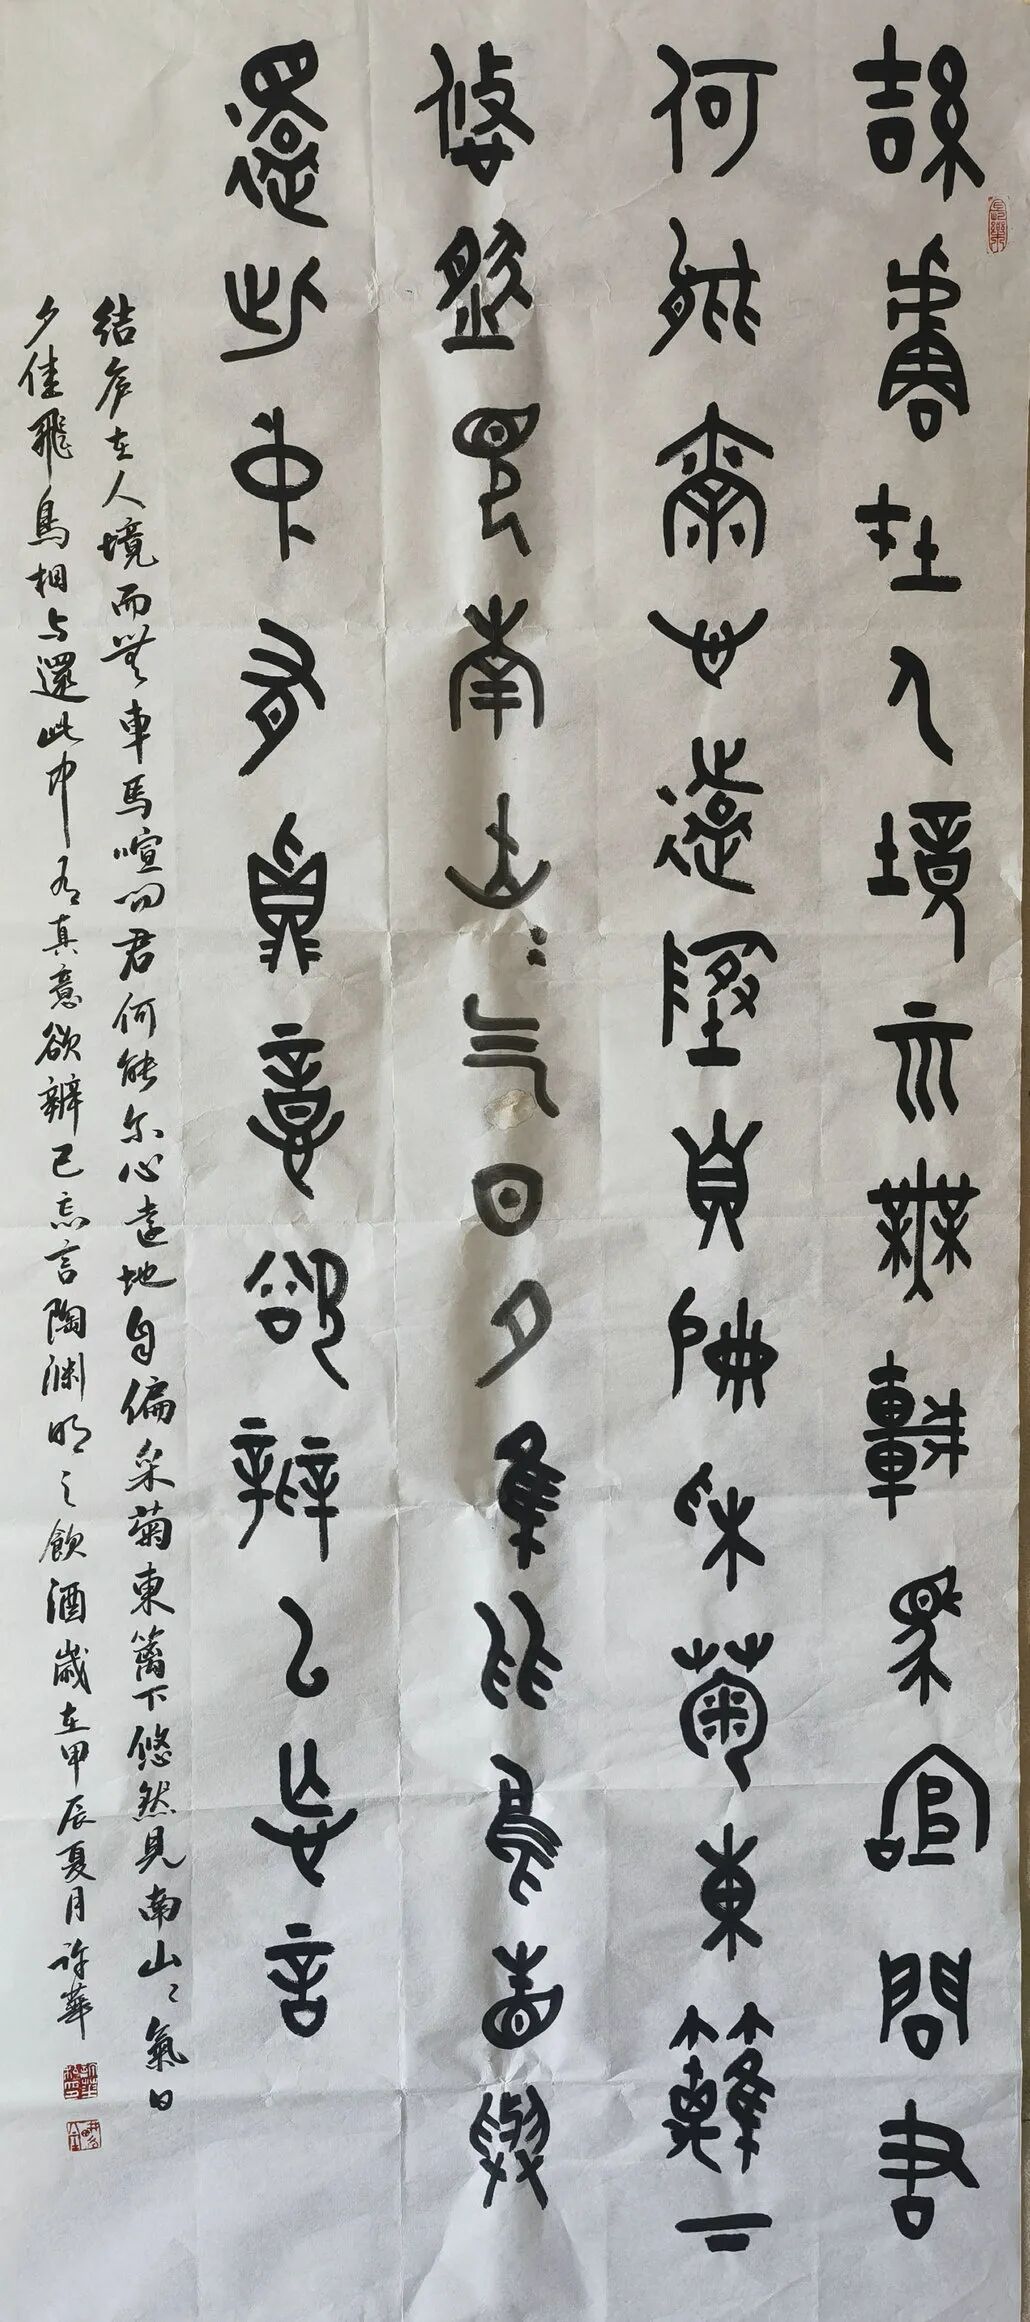 結廬在人境而無車馬喧問君
何能爾心遠地自偏采菊東籬下
悠然見南山〻气日夕佳飛鳥相與
還此中有真意欲辨已忘言
结庐在人境而無車馬喧问君何能尔心遠地自偏采菊東籬下悠然見南山〻氣日
夕佳飛鳥相与還此中有真意欲辨已忘言陶渊明之飲酒歲在甲辰夏月许華